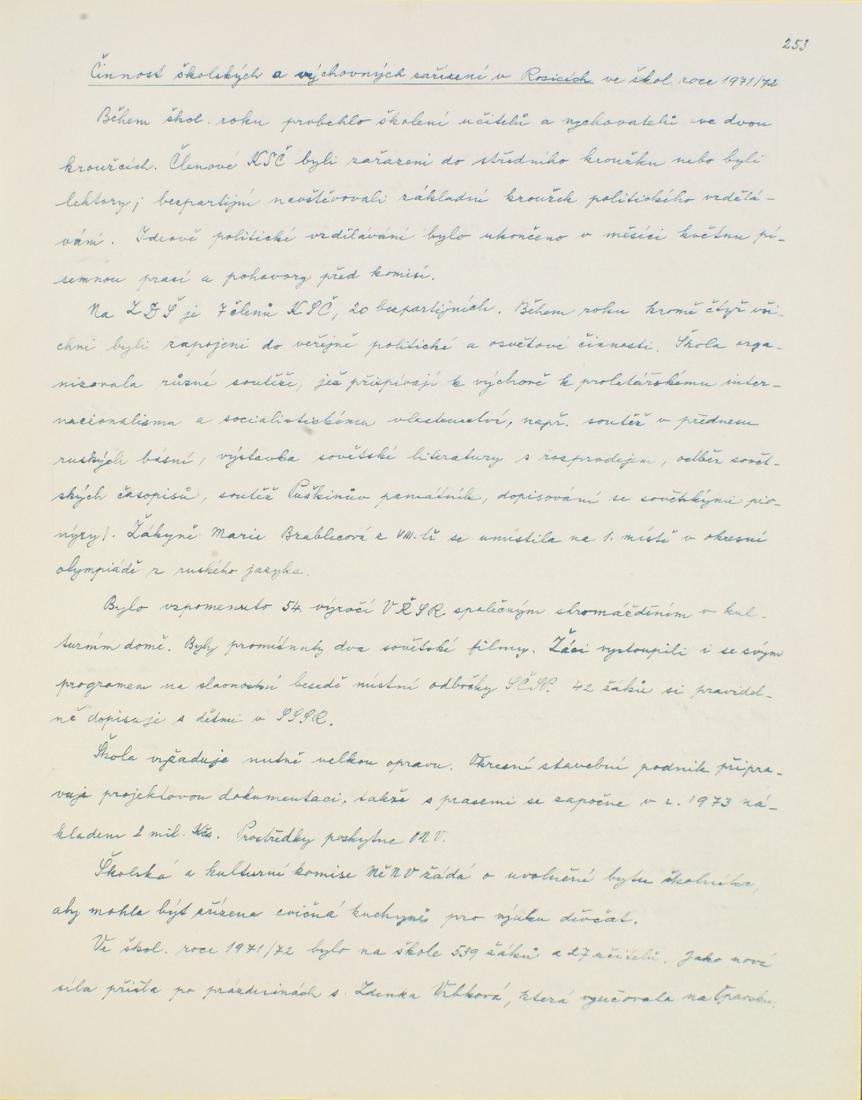 253
Činnost školských a výchovných zařízení v Rosicích ve škol. roce 1971/72
Během škol. roku proběhlo školení učitelů a vychovatelů ve dvou
kroužcích. Členové KSČ byli zařazeni do středního kroužku nebo byli
lektory; bezpartijní navštěvovali základní kroužek politického vzdělá-
vání. Ideově politické vzdělávání bylo ukončeno v měsíci květnu pí-
semnou prací a pohovory před komisí.
Na ZDŠ je 7 členů KSČ, 20 bezpartijních. Během roku kromě čtyř vši-
chni byli zapojeni do veřejně politické a osvětové činnosti. Škola orga-
nizovala různé soutěže, jež přispívají k výchově k proletářskému inter-
nacionalismu a socialistickému vlastenectví, např. soutěž v přednesu
ruských básní, výstavka sovětské literatury s rozprodejem, odběr sovět-
ských časopisů, soutěž Puškinův památník, dopisování se sovětskými pio-
nýry). Žákyně Marie Brablecová z VIII. tř. se umístila na 1. místě v okresní
olympiádě z ruského jazyka.
Bylo vzpomenuto 54. výročí VŘSR společným shromážděním v kul-
turním domě. Byly promítnuty dva sovětské filmy. Žáci vystoupili i se svým
programem na slavnostní besedě místní odbočky SČSP. 42 žáků si pravidel-
ně dopisuje s dětmi v SSSR.
Škola vyžaduje nutně velkou opravu. Okresní stavební podnik připra-
vuje projektovou dokumentaci, takže s pracemi se započne v r. 1973 ná-
kladem 2 mil. Kčs. Prostředky poskytne ONV.
Školská a kulturní komise MěNV žádá o uvolnění bytu školníka,
aby mohla být zřízena cvičná kuchyně pro výuku děvčat.
Ve škol. roce 1971/72 bylo na škole 539 žáků a 27 učitelů. Jako nová
síla přišla po prázdninách s. Zdenka Vrbková, která vyučovala na